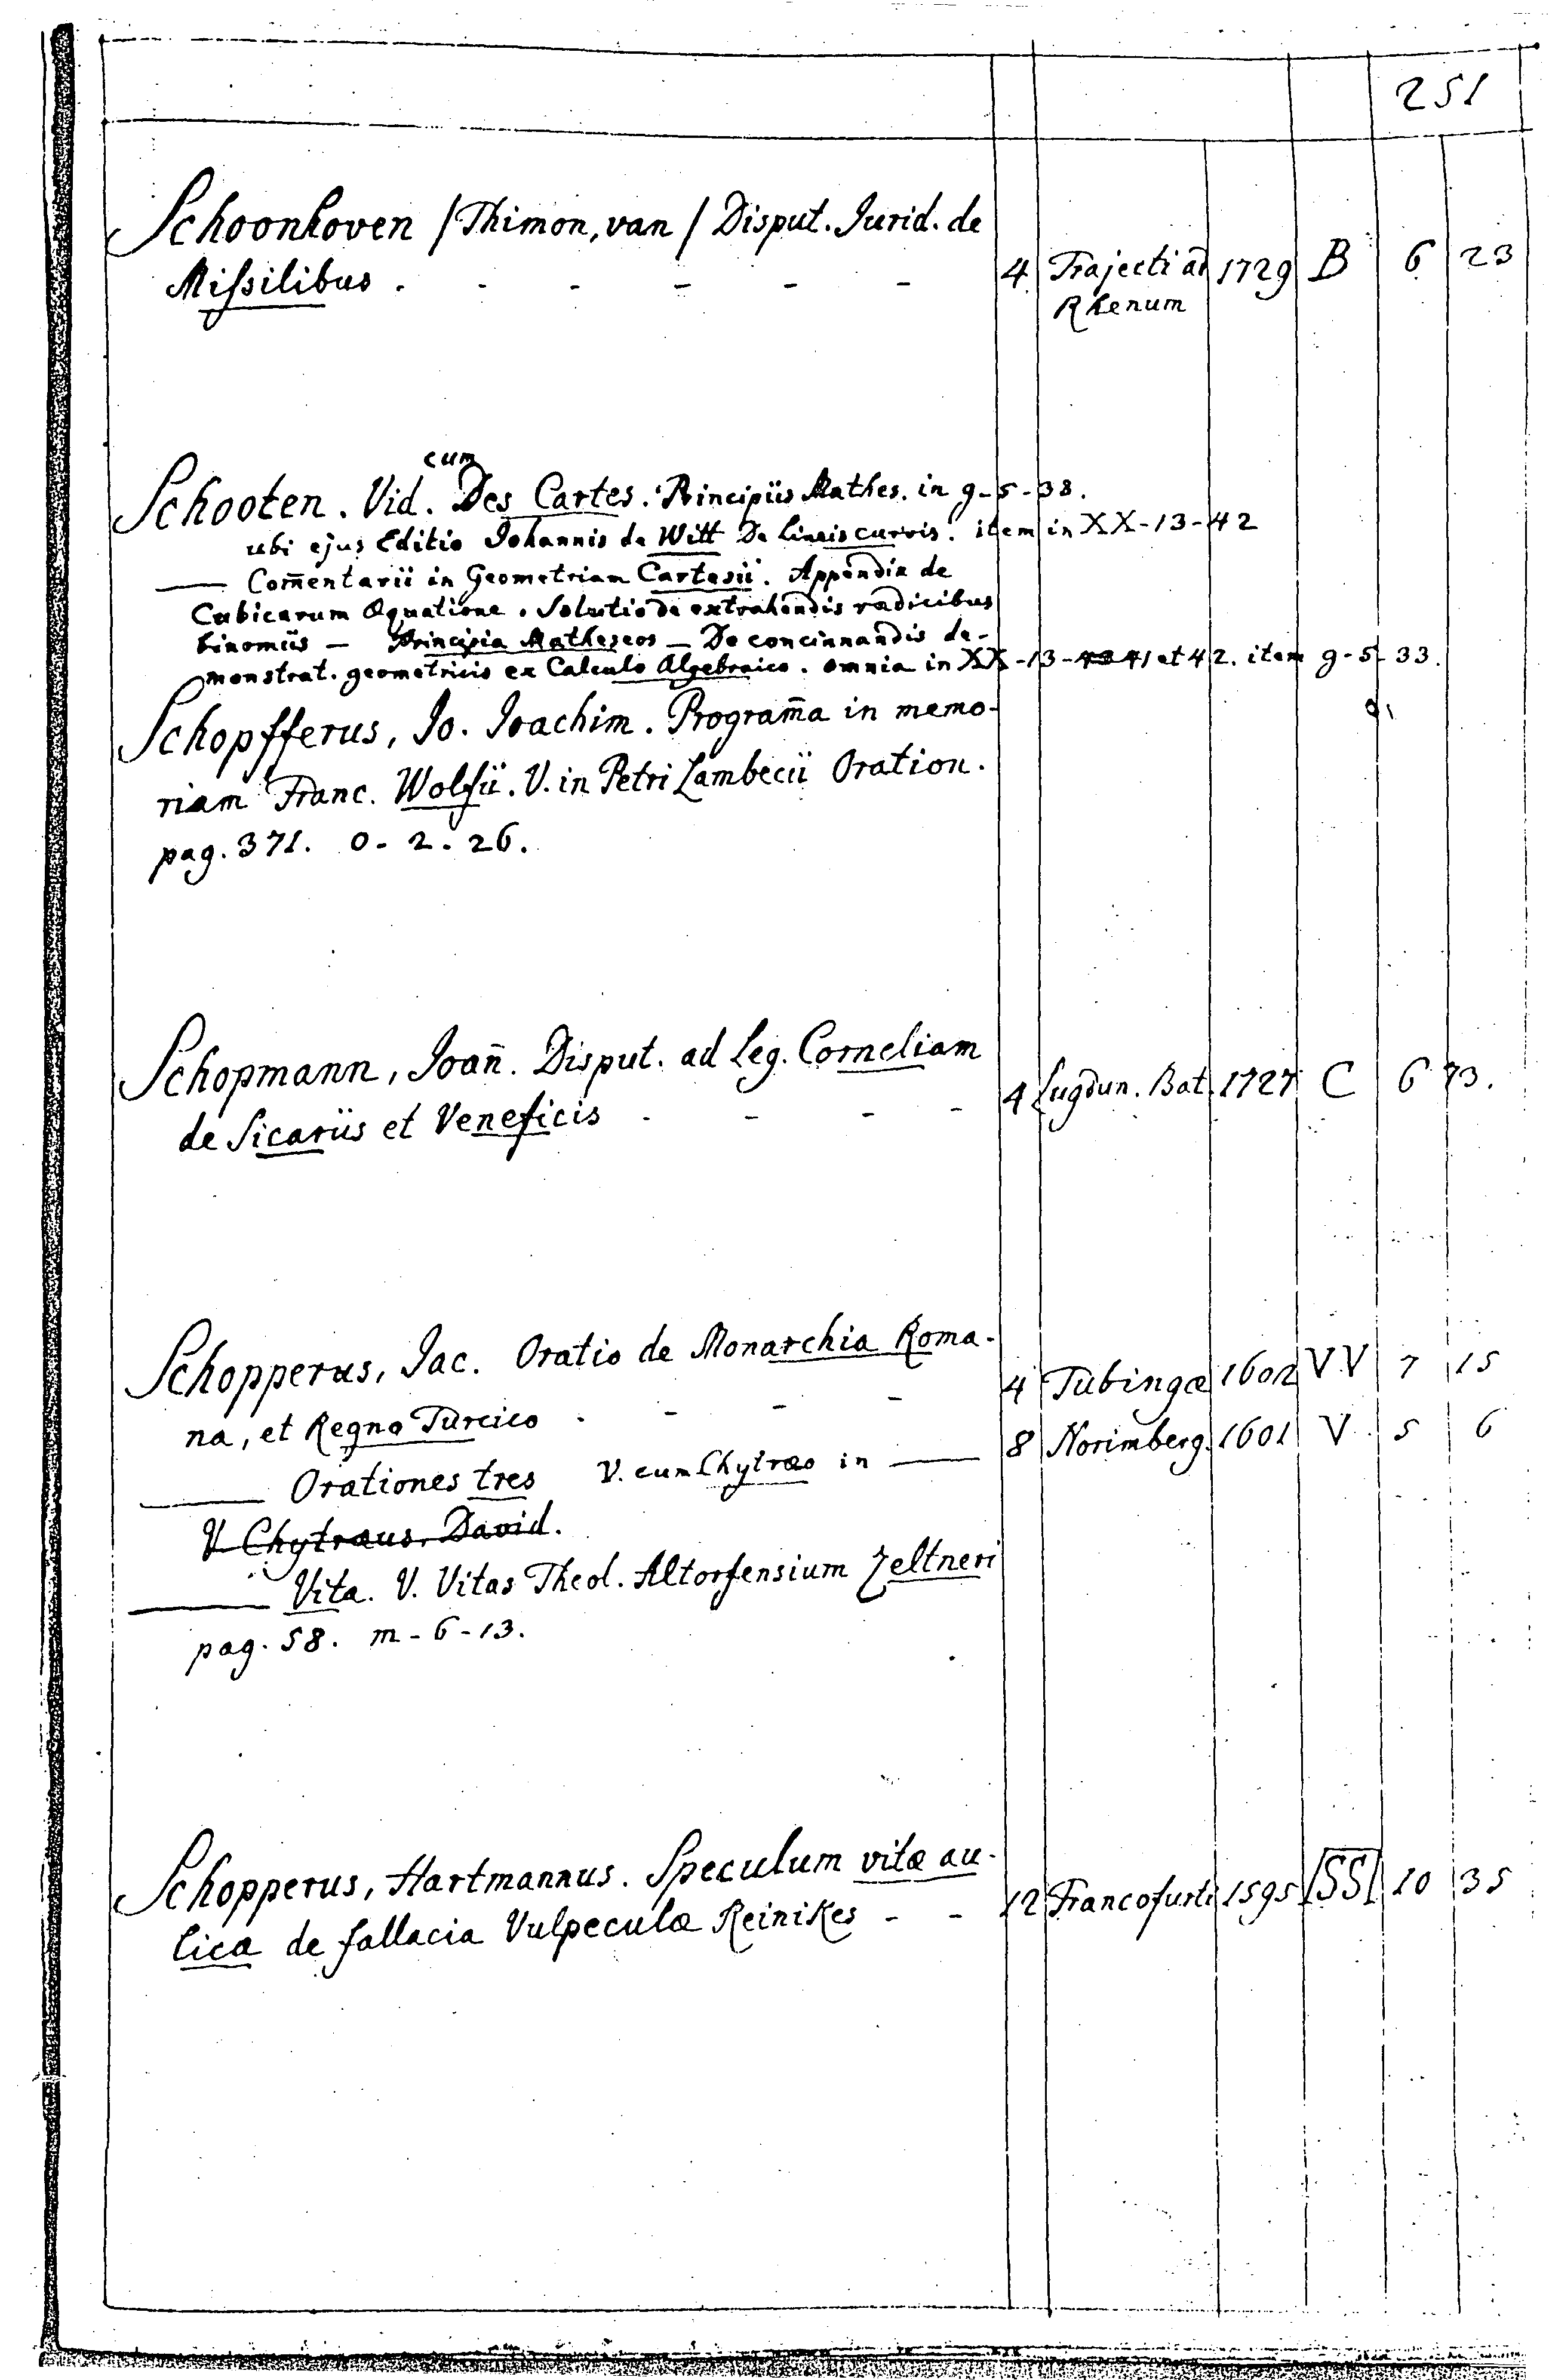 251
Schoonhoven /Thimon, van/ Disput. Jurid. de
Missilibus . - - - - - 4 Trajecti ad 1729 B 6 23
Rhenum
cum
Schooten. Vid. Des Cartes. Principiis Mathes. in g-5-38.
ubi ejus Editio Johannis de Witt De Lineis curvis. item in XX-13-42
— Com̄entarii in Geometriam Cartesii. Appendix de
Cubicarum Æquatione. Solutio de extrahendis radicibus
binomiis — Principia Matheseos — De concinnandis de-
monstrat. geometricis ex Calculo Algebraico. omnia in XX-13-41 et 42. item g-5-33.
Schopfferus, Jo. Joachim. Program̄a in memo-
riam Franc. Wolfii. V. in Petri Lambecii Oration.
pag. 371. 0-2-26.
Schopmann, Joan̄. Disput. ad Leg. Corneliam
de Sicariis et Veneficis - - - - 4 Lugdun. Bat. 1727 C 6 73.
Schopperus, Jac. Oratio de Monarchia Roma-
na, et Regno Turcico - - - - 4 Tubingæ 1602 VV 7 15
— Orationes tres V. cum Chytræo in — 8 Norimberg. 1601 V 5 6
V Chytræus, David.
— Vita. V. Vitas Theol. Altorfensium Zeltneri
pag. 58. m-6-13.
Schopperus, Hartmannus. Speculum vitæ au-
licæ de fallacia Vulpeculæ Reinikes - - 12 Francofurti 1595 SS 10 35